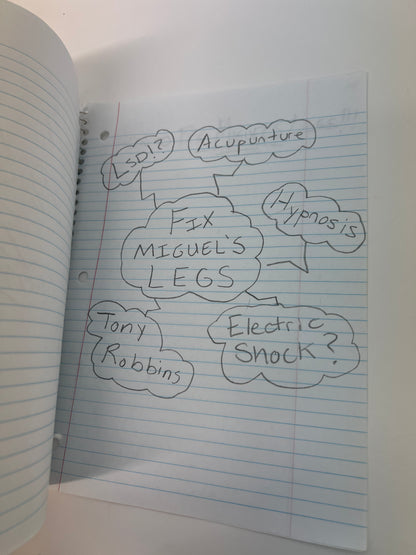 LSD!?
Acupunture
Hypnosis
FIX
MIGUEL'S
LEGS
Tony
Robbins
Electric
Shock?